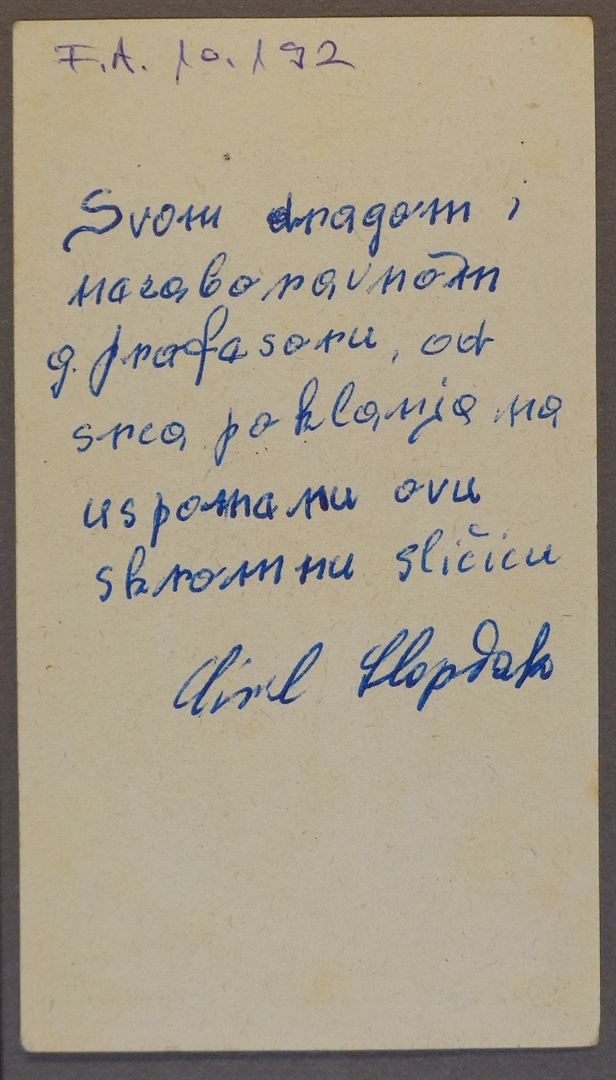 F.A. 10.192
Svom dragom i
nezaboravnom
g. profesoru, od
srca poklanja na
uspomenu ovu
skromnu sličicu